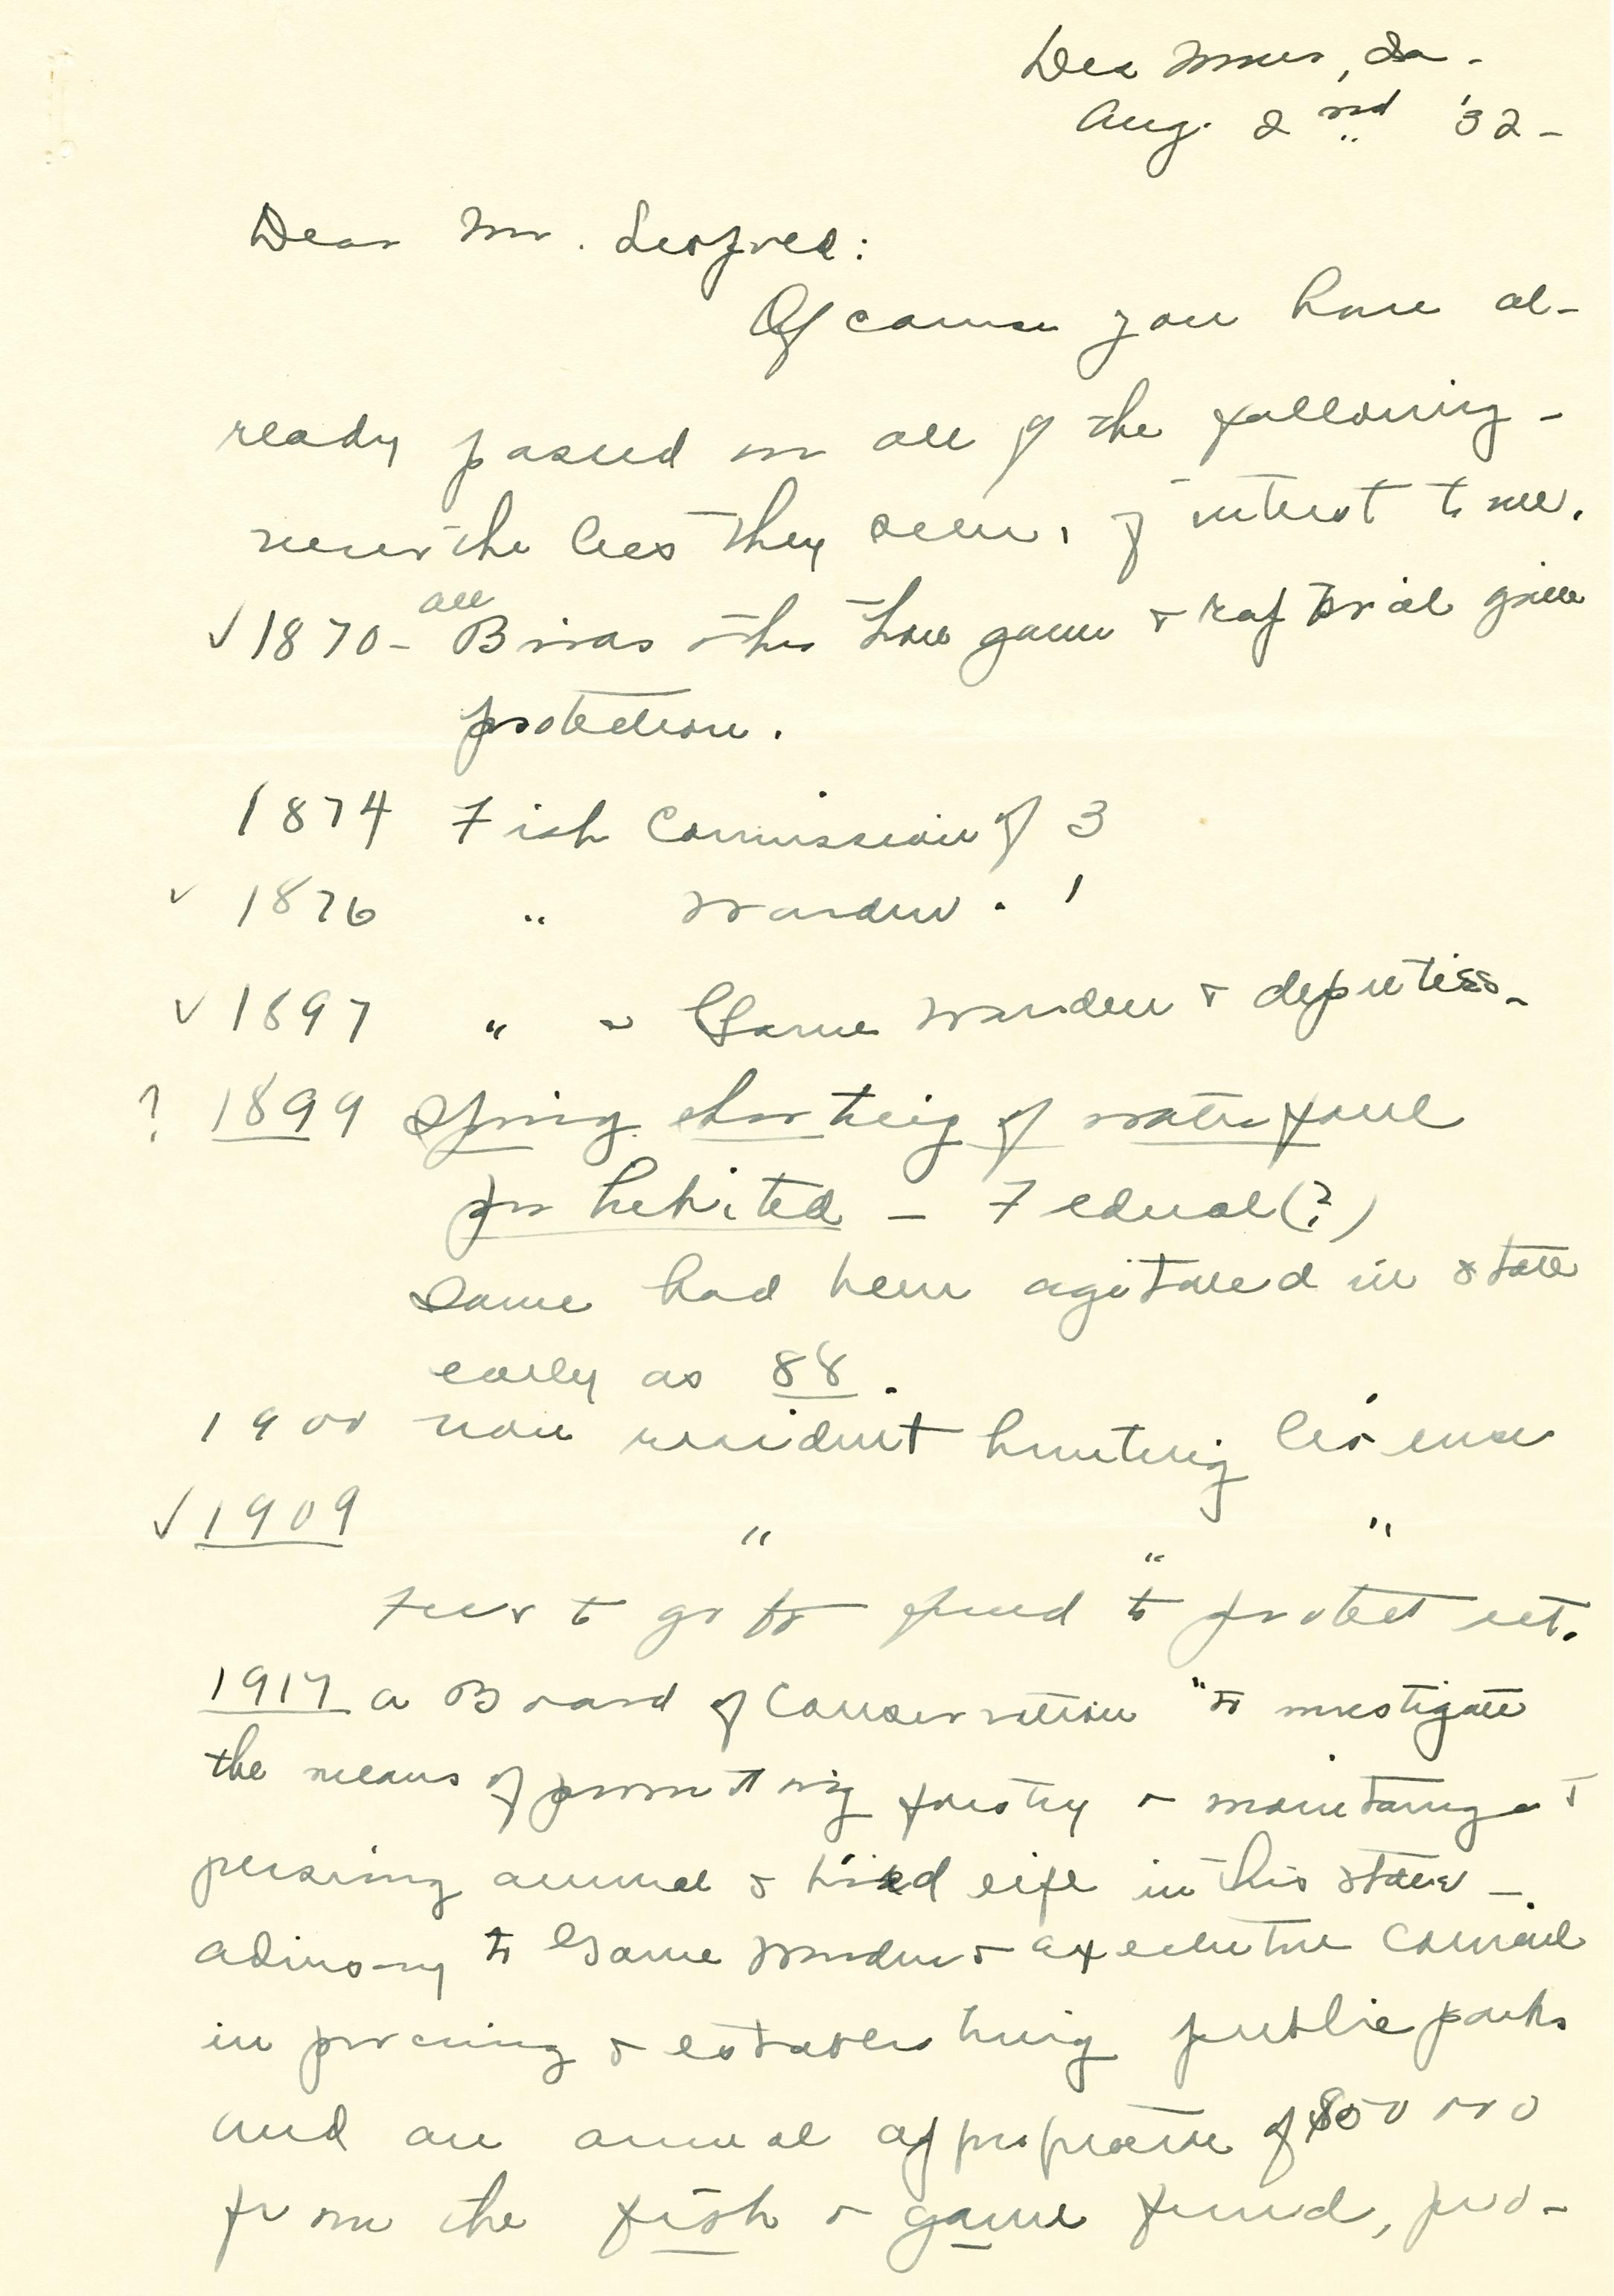 Des Moines, Ia.
Aug. 2nd '32 -
Dear Mr. Leopold:
Of course you have al-
ready passed on all of the following -
never the less they seem of interest to me.
✓ 1870 - all Birds other than game & raptorial given
protection.
1874 Fish Commission of 3
✓ 1876 " Warden . 1
✓ 1897 " & Game Warden & deputies -
? 1899 Spring shooting of waterfowl
prohibited - Federal (?)
Same had been agitated in state
early as 88.
1900 non resident hunting license
✓ 1909 " " "
Fees to go to fund to protect ect.
1917 a Board of Conservation "to investigate
the means of promoting forestry & maintaining &
persering animal & bird life in this state -
advisory to Game Warden & executive Council
in procuring & establishing public parks
and an annual appropriation of $50000
from the fish & game fund, pro-